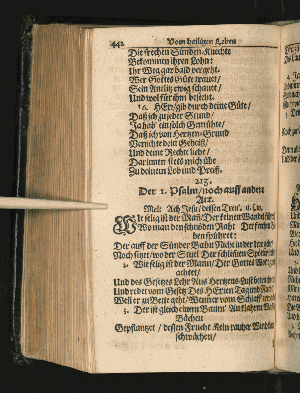 442 Vom heiligen Leben
Die frechen Sünden-Knechte
Bekommen ihren Lohn:
Ihr Weg gar bald vergeht.
Wer Gottes Güte trauet/
Sein Antlitz ewig schauet/
Und wol für ihm besteht.
HErr/gib durch deine Güte/
Daß ich zu jeder Stund/
Ja hab' ein solch Gemühte/
Daß ich von Hertzen-Grund
Verrichte dein Geheiß/
Und deine Rechte liebe/
Darinnen stets mich übe
Zu deinem Lob und Preiß.
213.
Der 1. Psalm/noch auff andere
Art.
Mel: Ach Jesu/dessen Treu'. u.s.w.
Wie selig ist der Mann/Der seinen Wandel
Wo man den schnöden Raht Der
Der auff der Sünder Bahn Nicht
Noch sitzet/wo der Stuel Der schlimmen
2. Wie selig ist der Mann/Der Gottes Wort
achtet/
Und des Gesetzes Lehr Aus Hertzens Lust
Und redet vom Gesetz Des HErrn Tag und Nacht
Weil er zu Bette geht/Wenn er vom Schlaff
3. Der ist gleich einem Baum/An
Bächen
Gepflantzet/dessen Frucht Kein rauher Wind
schwächen/